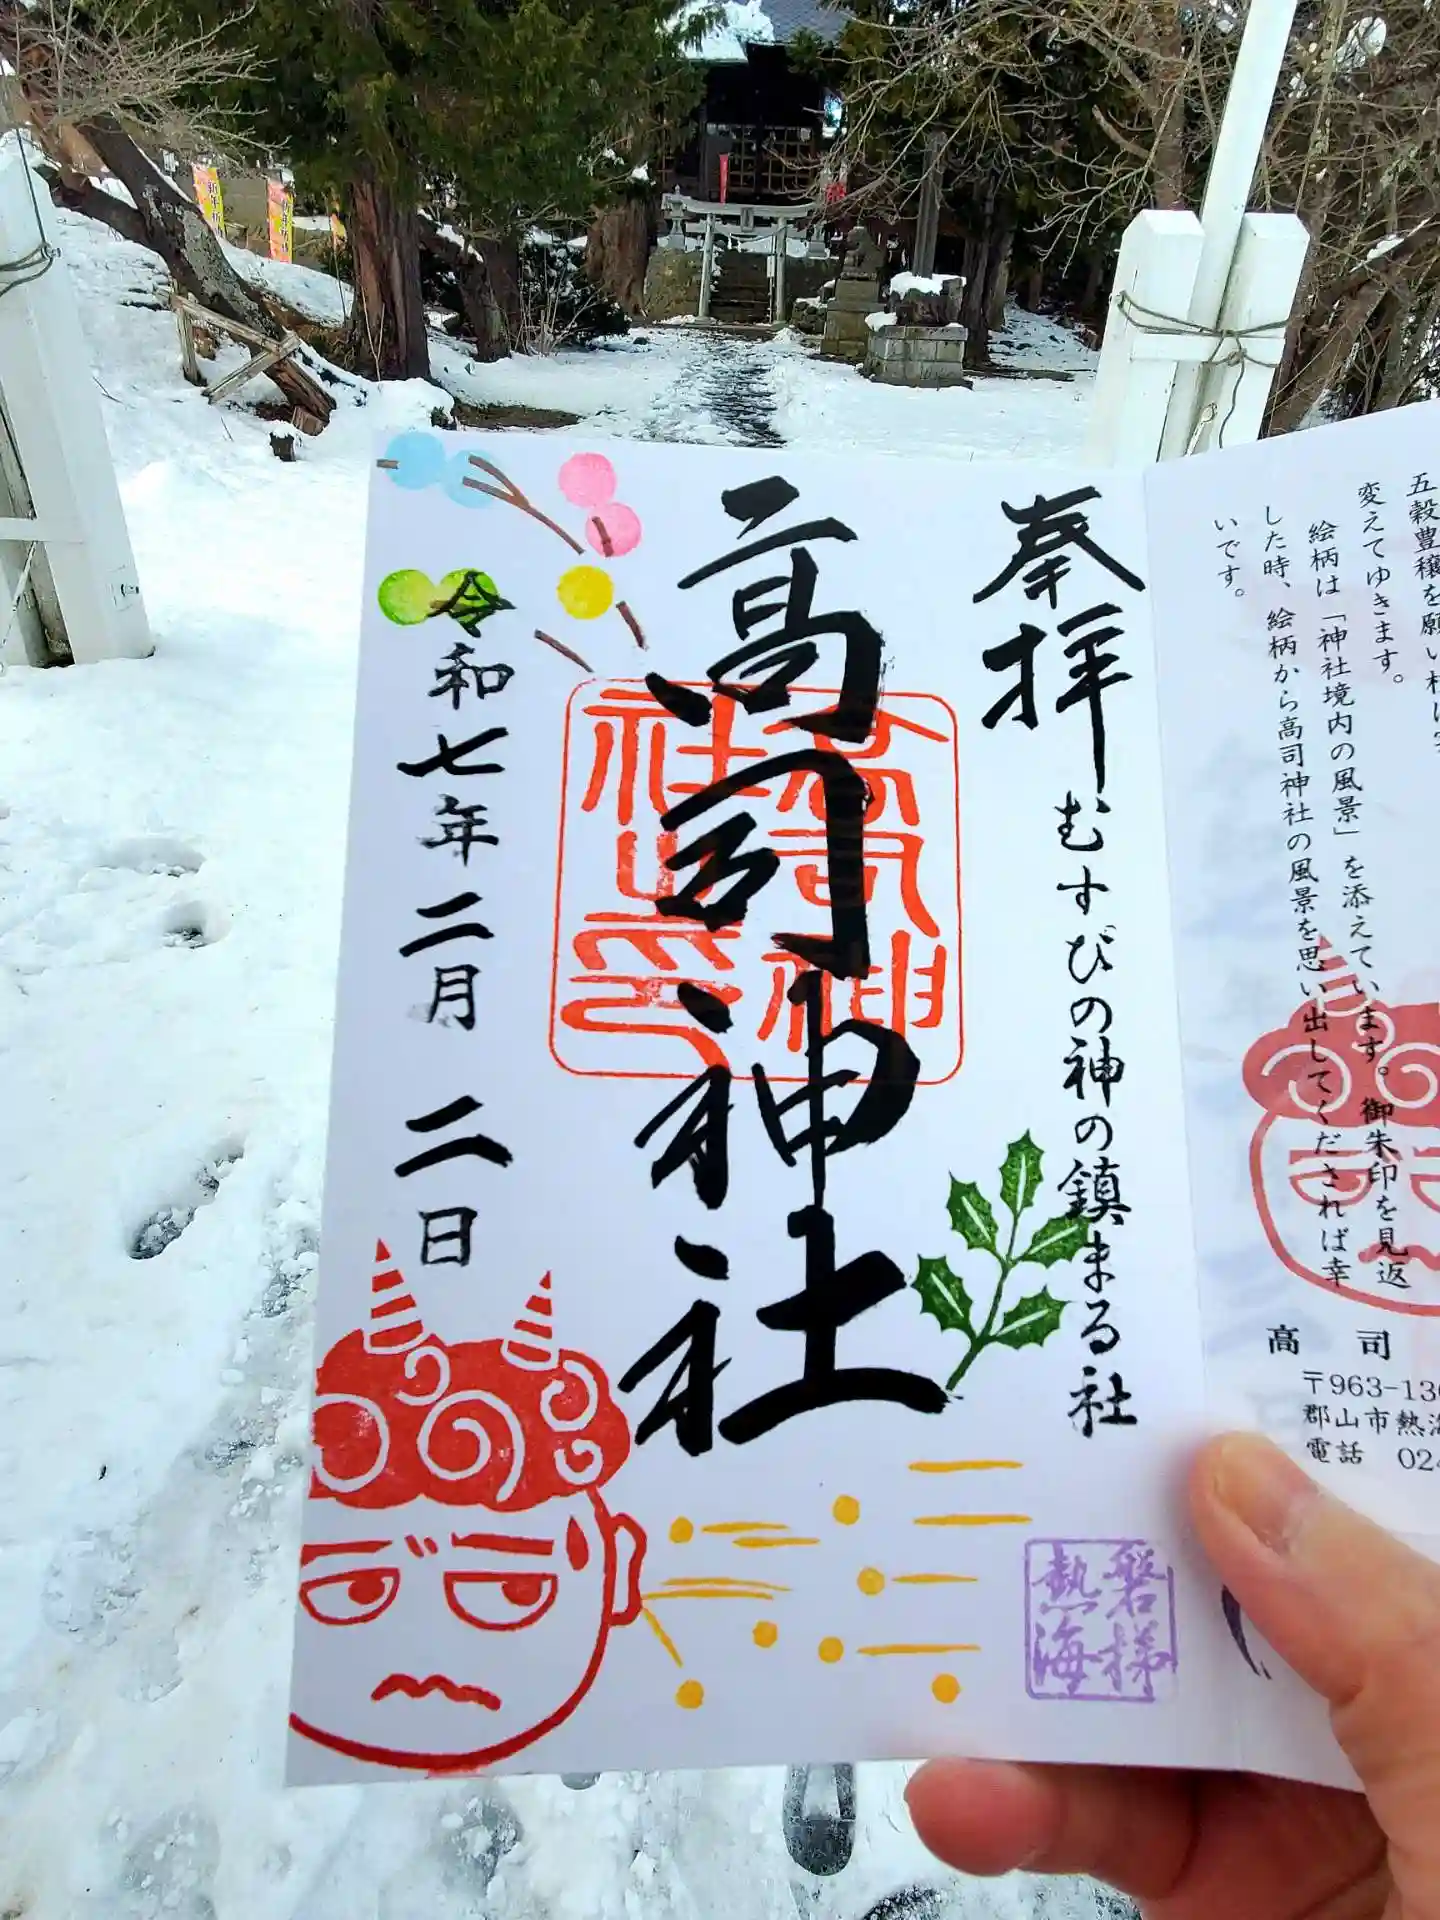 五穀豊穣を願い
変えてゆきます。
絵柄は「神社境内の風景」を添えています。御朱印を見返
した時、絵柄から高司神社の風景を思い出してくだされば幸
いです。
高司
〒963-13
郡山市熱海
電話 024
奉拝
むすびの神の鎮まる社
高司神社
高司神
社之印
令和七年二月 二日
磐梯
熱海